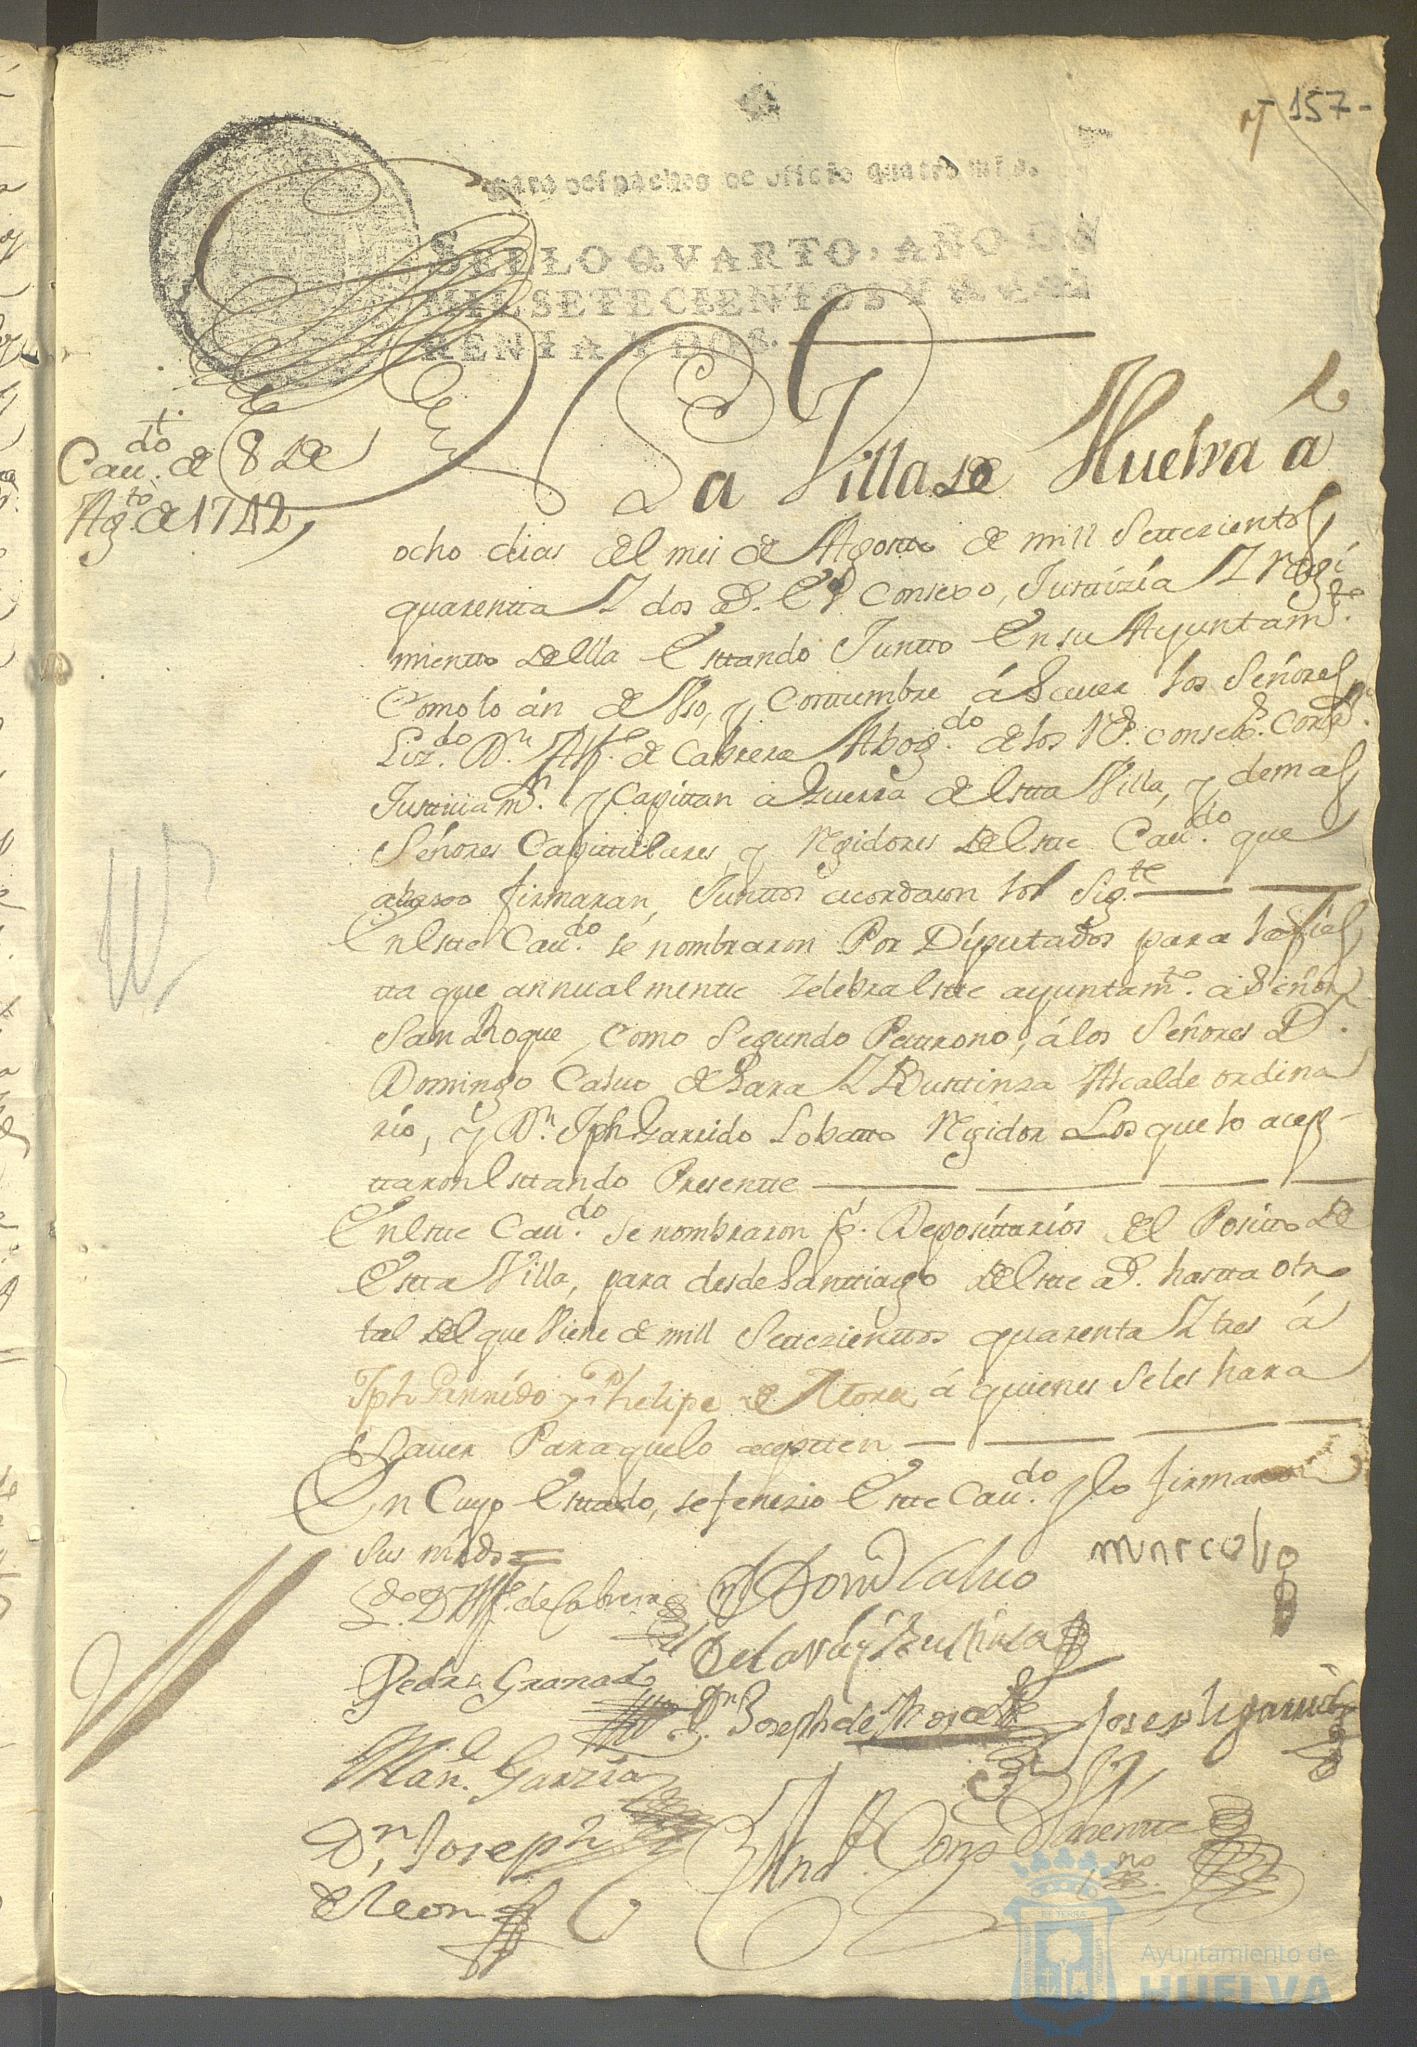 157-
para despachos de oficio quatro mrs.
SELLO QVARTO, AÑO DE
MIL SETECIENTOS Y QVAREN
RENTA Y DOS.
Cau.do de 8 de
Ag.to de 1742
En La Villa de Huelva á
ocho dias del mes de Agosto de mill Settecientos
quarentta Y dos a.s El Consexo, Justtizia Y regi
mientto della Esttando Juntto En su Ayuntam.to
Como lo án de Uso, y Costtumbre á Sauer los Señores
Liz.do D.n Alf.o de Cabrera Abog.do de los R.s consexos Corr.r
Justicia m.r y Capittan a Guerra de Estta Villa, y demas
Señores Capittulares, y Regidores de Estte Cau.do que
abaxo firmaran, Junttos acordaron los Sig.te
En Estte Cau.do se nombraron Por Díputados para la fies
tta que annualmentte Zelebra Estte ayuntam.to a Señor
San Roque, como Segundo Pattrono, á los Señores D.n
Domingo Caluo de Lara Y Busttinza Alcalde ordina
rio, y D.n Jph Garrido Lobatto Regidor Los que lo acep-
ttaron Esttando Presentte
En Estte Cau.do se nombraron p.r Deposittarios del Positto de
Estta Villa, para desde Santtiago de Estte a.o hastta otro
tal del que Viene de mill Settezienttos quarenta Y tres á
Jph Garrido y Phelipe de Mora á quienes se les hara
Sauer Para que lo aceptten
En Cuyo Esttado, se fenezio Estte Cau.do y lo firmaron
Sus mrds=
L.do D. Alf.o de Cabrera
Dom.o Caluo
De Lara y Bustinza
Pedro Granado
D.n Joseph de
Joseph garrido
Man.l Garzia
D.n Joseph
de Leon
And.s Gonz
Ayuntamiento de
HUELVA